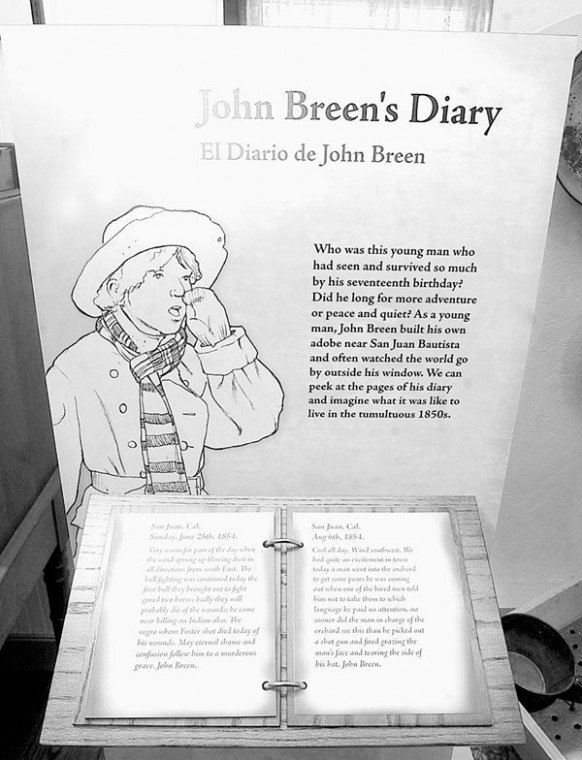 John Breen's Diary
El Diario de John Breen
Who was this young man who
had seen and survived so much
by his seventeenth birthday?
Did he long for more adventure
or peace and quiet? As a young
man, John Breen built his own
adobe near San Juan Bautista
and often watched the world go
by outside his window. We can
peek at the pages of his diary
and imagine what it was like to
live in the tumultuous 1850s.
San Juan. Cal.
Sunday, June 25th. 1854.
Very warm for part of the day when
the wind sprung up blowing dust in
all directions from south East. The
bull fighting was continued today the
first bull they brought out to fight
gored two horses badly they will
probably die of the wounds; he came
near killing an Indian also. The
negro whom Foster shot died today of
his wounds. May eternal shame and
confusion follow him to a murderous
grave. John Breen.
San Juan. Cal.
Aug 6th. 1854.
Cool all day. Wind southwest. We
had quite an excitement in town
today a man went into the orchard
to get some pears he was coming
out when one of the hired men told
him not to take them to which
language he paid no attention, no
sooner did the man in charge of the
orchard see this than he picked out
a shot gun and fired grazing the
man's face and tearing the side of
his hat. John Breen.